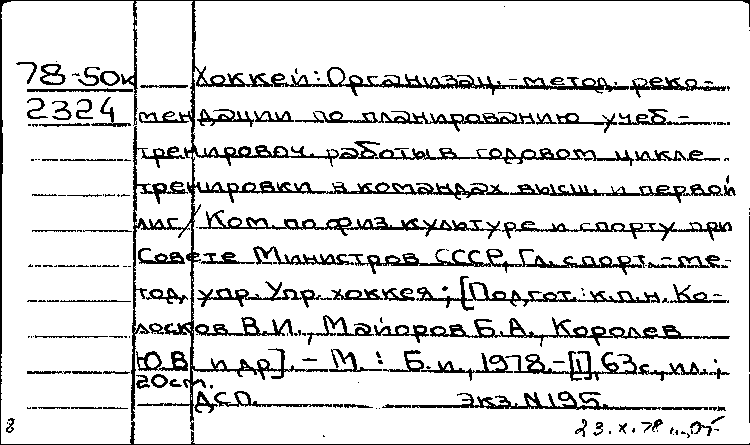 78-50к Хоккей: Организац.-метод. реко-
2324 мендации по планированию учеб.-
тренировоч. работы в годовом цикле
тренировки в командах высш. и первой
лиг / Ком. по физ культуре и спорту при
Совете Министров СССР, Гл. спорт.-ме-
тод. упр. Упр. хоккея; [Подгот.: к.п.н. Ко-
лосков В.И., Майоров Б.А., Королев
Ю.В. и др]. - М. : Б.и., 1978.-[1], 63с., ил.;
20см.
ДСП. экз. N195.
8 23.X.78